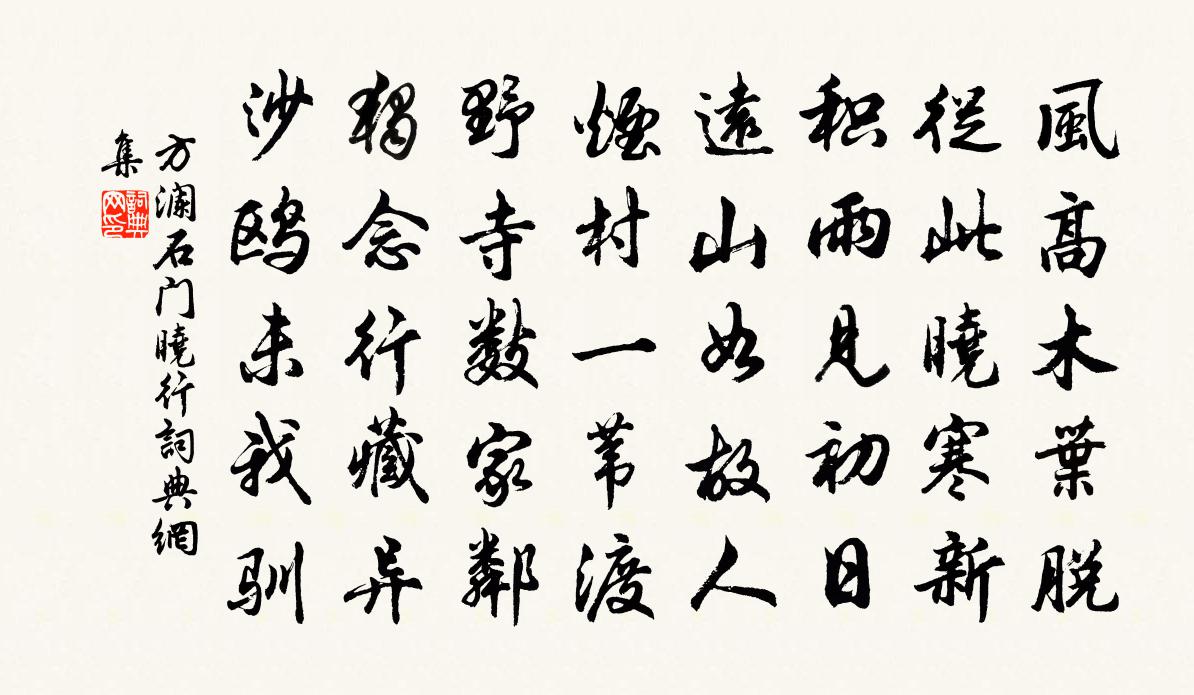 風高木葉脱
從此曉寒新
积雨見初日
遠山如故人
煙村一苇渡
野寺數家鄰
獨念行藏异
沙鸥未我驯
方澜石门曉行詞典網
集
詞典
网印